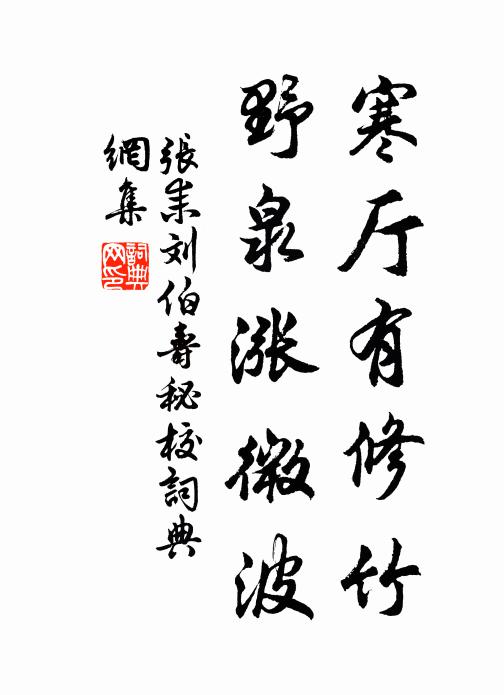 寒厅有修竹
野泉涨微波
張耒刘伯壽秘校詞典
網集
詞典網印